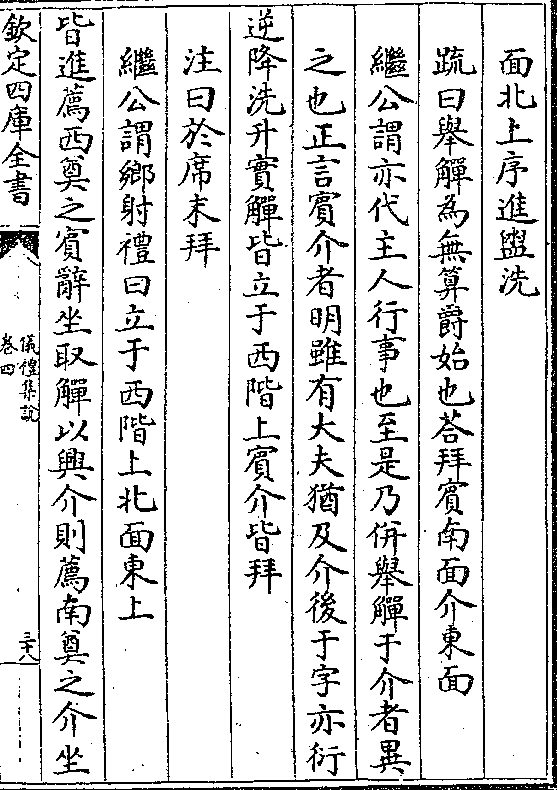 面北上序進盥洗
疏曰舉觶為無算爵始也荅拜賓南面介東面
繼公謂亦代主人行事也至是乃併舉觶于介者異
之也正言賓介者明雖有大夫猶及介後于字亦衍
逆降洗升實觶皆立于西階上賓介皆拜
注曰於席末拜
繼公謂鄉射禮曰立于西階上北面東上
皆進薦西奠之賓辭坐取觶以興介則薦南奠之介坐
欽定四庫全書
儀禮集說
卷四
三十八